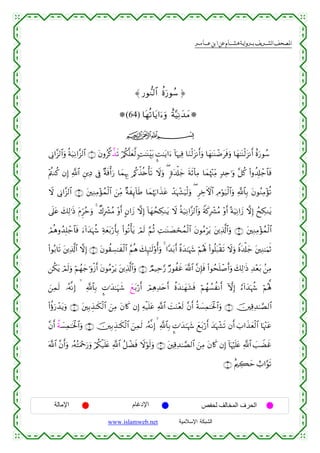 المصحف الشريف برواية هشام عن ابن عامر
﴿ سُورَةُ ٱلنُّورِ ﴾
مَدَنِيَّةٌ وَءَايَاتُهَا (64)
بِسْمِ ٱللَّهِ ٱلرَّحْمَٰنِ ٱلرَّحِيمِ
سُورَةٌ أَنزَلْنَٰهَا وَفَرَضْنَٰهَا وَأَنزَلْنَا فِيهَآ ءَايَٰتٍۭ بَيِّنَٰتٍ لَّعَلَّكُمْ تَذَّكَّرُونَ ۝ ٱلزَّانِيَةُ وَٱلزَّانِى
فَٱجْلِدُوا۟ كُلَّ وَٰحِدٍ مِّنْهُمَا مِا۟ئَةَ جَلْدَةٍ ۖ وَلَا تَأْخُذْكُم بِهِمَا رَأْفَةٌ فِى دِينِ ٱللَّهِ إِن كُنتُمْ
تُؤْمِنُونَ بِٱللَّهِ وَٱلْيَوْمِ ٱلْءَاخِرِ ۖ وَلْيَشْهَدْ عَذَابَهُمَا طَآئِفَةٌ مِّنَ ٱلْمُؤْمِنِينَ ۝ ٱلزَّانِى لَا
يَنكِحُ إِلَّا زَانِيَةً أَوْ مُشْرِكَةً وَٱلزَّانِيَةُ لَا يَنكِحُهَآ إِلَّا زَانٍ أَوْ مُشْرِكٌ ۚ وَحُرِّمَ ذَٰلِكَ عَلَى
ٱلْمُؤْمِنِينَ ۝ وَٱلَّذِينَ يَرْمُونَ ٱلْمُحْصَنَٰتِ ثُمَّ لَمْ يَأْتُوا۟ بِأَرْبَعَةِ شُهَدَآءَ فَٱجْلِدُوهُمْ
ثَمَٰنِينَ جَلْدَةً وَلَا تَقْبَلُوا۟ لَهُمْ شَهَٰدَةً أَبَدًا ۚ وَأُو۟لَٰٓئِكَ هُمُ ٱلْفَٰسِقُونَ ۝ إِلَّا ٱلَّذِينَ تَابُوا۟
مِنۢ بَعْدِ ذَٰلِكَ وَأَصْلَحُوا۟ فَإِنَّ ٱللَّهَ غَفُورٌ رَّحِيمٌ ۝ وَٱلَّذِينَ يَرْمُونَ أَزْوَٰجَهُمْ وَلَمْ يَكُن
لَّهُمْ شُهَدَآءُ إِلَّآ أَنفُسُهُمْ فَشَهَٰدَةُ أَحَدِهِمْ أَرْبَعَ شَهَٰدَٰتٍۭ بِٱللَّهِ ۙ إِنَّهُۥ لَمِنَ
ٱلصَّٰدِقِينَ ۝ وَٱلْخَٰمِسَةُ أَنَّ لَعْنَتَ ٱللَّهِ عَلَيْهِ إِن كَانَ مِنَ ٱلْكَٰذِبِينَ ۝ وَيَدْرَؤُا۟
عَنْهَا ٱلْعَذَابَ أَن تَشْهَدَ أَرْبَعَ شَهَٰدَٰتٍۭ بِٱللَّهِ ۙ إِنَّهُۥ لَمِنَ ٱلْكَٰذِبِينَ ۝ وَٱلْخَٰمِسَةُ أَنَّ
غَضَبَ ٱللَّهِ عَلَيْهَآ إِن كَانَ مِنَ ٱلصَّٰدِقِينَ ۝ وَلَوْلَا فَضْلُ ٱللَّهِ عَلَيْكُمْ وَرَحْمَتُهُۥ وَأَنَّ ٱللَّهَ
تَوَّابٌ حَكِيمٌ ۝
الحرف المخالف لحفص الإدغام الإمالة
الشبكة الإسلامية www.islamweb.net